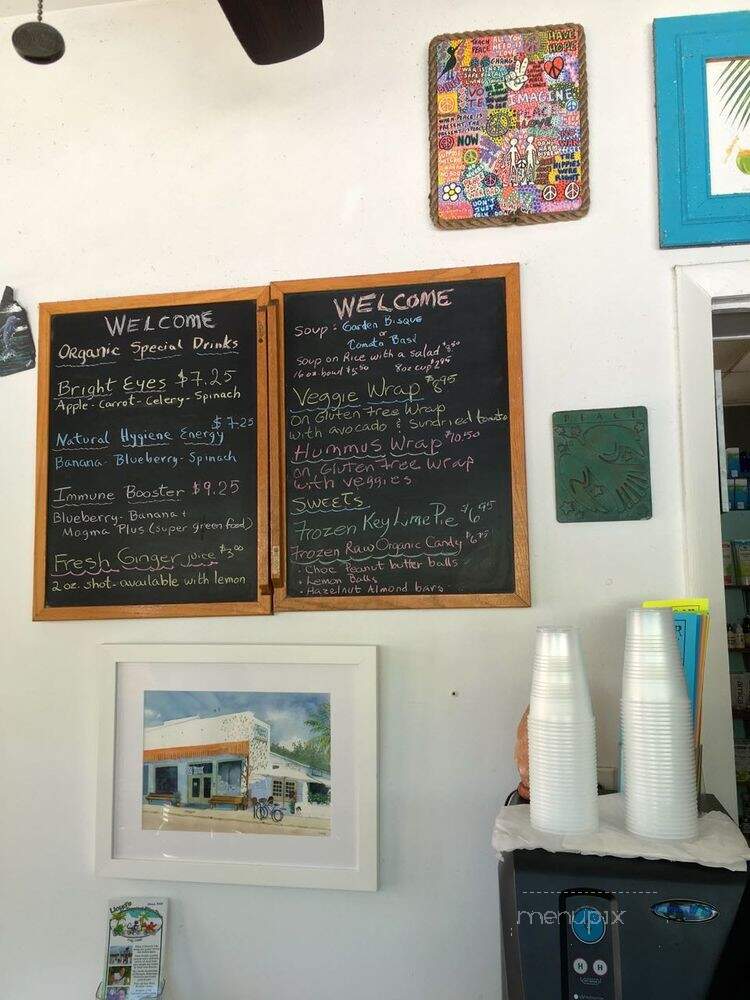 WELCOME
Organic Special Drinks
Bright Eyes $7.25
Apple-Carrot-Celery-Spinach
Natural Hygiene Energy $7.25
Banana-Blueberry-Spinach
Immune Booster $9.25
Blueberry-Banana +
Magma Plus (super green food)
Fresh Ginger juice $3.00
2 oz. shot-available with lemon
WELCOME
Soup: Garden Bisque
or
Tomato Basil
Soup on Rice with a salad
16 oz. bowl $5.50 8oz cup
Veggie Wrap $8.95
on Gluten Free Wrap
with avocado & sundried tomato
Hummus Wrap $10.50
on Gluten Free Wrap
with veggies
SWEETS
Frozen Key Lime Pie $6.95
Frozen Raw Organic Candy
• Choc Peanut butter balls
• Lemon Balls
• Hazelnut Almond bars
TEACH PEACE
ALL YOU NEED IS LOVE
HAVE HOPE
VOTE
IMAGINE
WHEN PEACE IS
NOW
PEACE
LOVE
THE HIPPIES WERE RIGHT
DON'T JUST
PEACE
H H
menupix